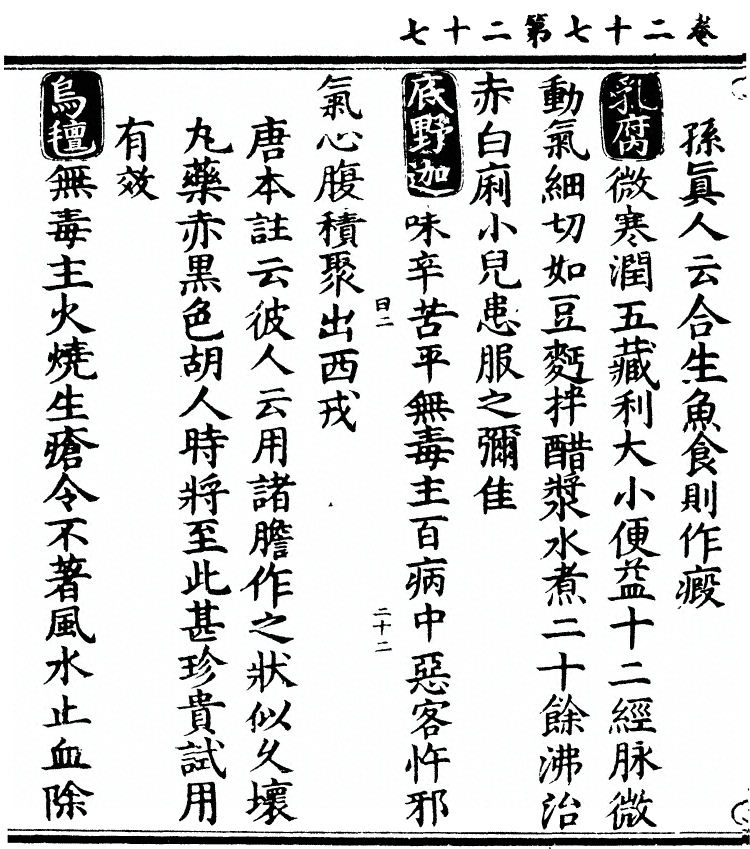 卷二十七第二十七
孫眞人云合生魚食則作瘕
乳腐微寒潤五藏利大小便益十二經脉微
動氣細切如豆麪拌醋漿水煮二十餘沸治
赤白痢小兒患服之彌佳
底野迦味辛苦平無毒主百病中惡客忤邪
氣心腹積聚出西戎
唐本註云彼人云用諸膽作之狀似久壞
丸藥赤黑色胡人時將至此甚珍貴試用
有效
烏氊無毒主火燒生瘡令不著風水止血除